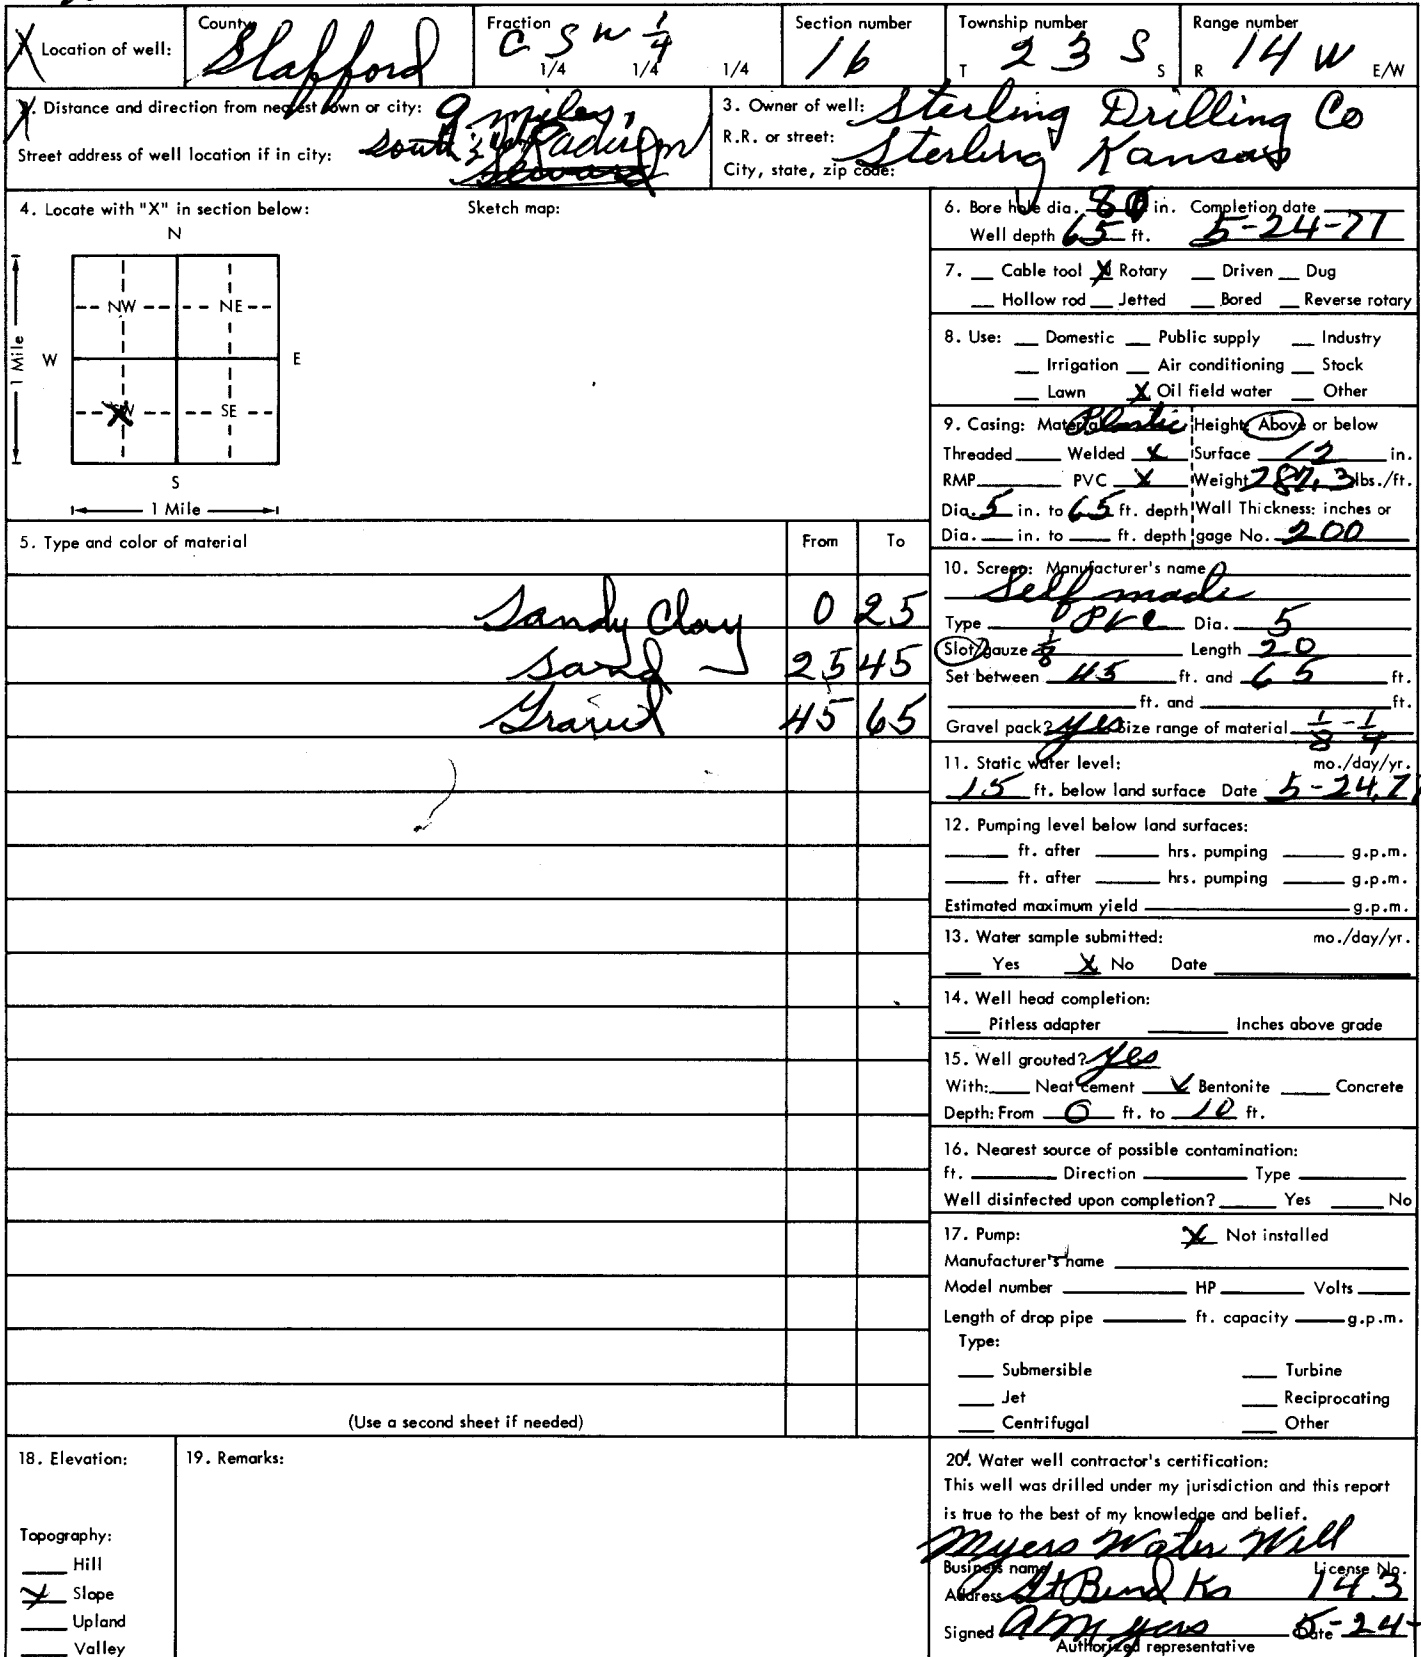 Location of well:
County
Stafford
Fraction
C SW 1/4
1/4 1/4 1/4
Section number
16
Township number
T 23 S S
Range number
R 14 W E/W
2. Distance and direction from nearest town or city: 9 miles,
south Radium
Street address of well location if in city: Seward
3. Owner of well: Sterling Drilling Co
R.R. or street:
City, state, zip code: Sterling Kansas
4. Locate with "X" in section below: Sketch map:
N
NW NE
W E
1 Mile
SW SE
S
1 Mile
6. Bore hole dia. 8 in. Completion date
Well depth 65 ft. 5-24-77
7. Cable tool X Rotary Driven Dug
Hollow rod Jetted Bored Reverse rotary
8. Use: Domestic Public supply Industry
Irrigation Air conditioning Stock
Lawn X Oil field water Other
9. Casing: Material Plastic Height: Above or below
Threaded Welded X Surface 12 in.
RMP PVC X Weight 287.3 lbs./ft.
Dia. 5 in. to 65 ft. depth Wall Thickness: inches or
Dia. in. to ft. depth gage No. 200
5. Type and color of material From To
Sandy Clay 0 25
Sand 25 45
Gravel 45 65
(Use a second sheet if needed)
10. Screen: Manufacturer's name
Self made
Type PVC Dia. 5
Slot/gauze 1/8 Length 20
Set between 45 ft. and 65 ft.
ft. and ft.
Gravel pack? yes Size range of material 1/8 - 1/4
11. Static water level: mo./day/yr.
15 ft. below land surface Date 5-24,7
12. Pumping level below land surfaces:
ft. after hrs. pumping g.p.m.
ft. after hrs. pumping g.p.m.
Estimated maximum yield g.p.m.
13. Water sample submitted: mo./day/yr.
Yes X No Date
14. Well head completion:
Pitless adapter Inches above grade
15. Well grouted? yes
With: Neat cement ✓ Bentonite Concrete
Depth: From 0 ft. to 10 ft.
16. Nearest source of possible contamination:
ft. Direction Type
Well disinfected upon completion? Yes No
17. Pump: X Not installed
Manufacturer's name
Model number HP Volts
Length of drop pipe ft. capacity g.p.m.
Type:
Submersible Turbine
Jet Reciprocating
Centrifugal Other
18. Elevation:
Topography:
Hill
X Slope
Upland
Valley
19. Remarks:
20. Water well contractor's certification:
This well was drilled under my jurisdiction and this report
is true to the best of my knowledge and belief.
Myers Water Well
Business name License No.
Address Gt Bend Ks 143
Signed A M Myers Date 5-24-
Authorized representative